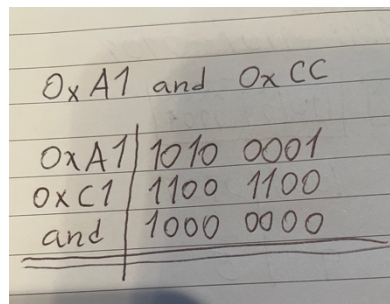 0xA1 and 0xCC
0xA1 1010 0001
0xC1 1100 1100
and 1000 0000